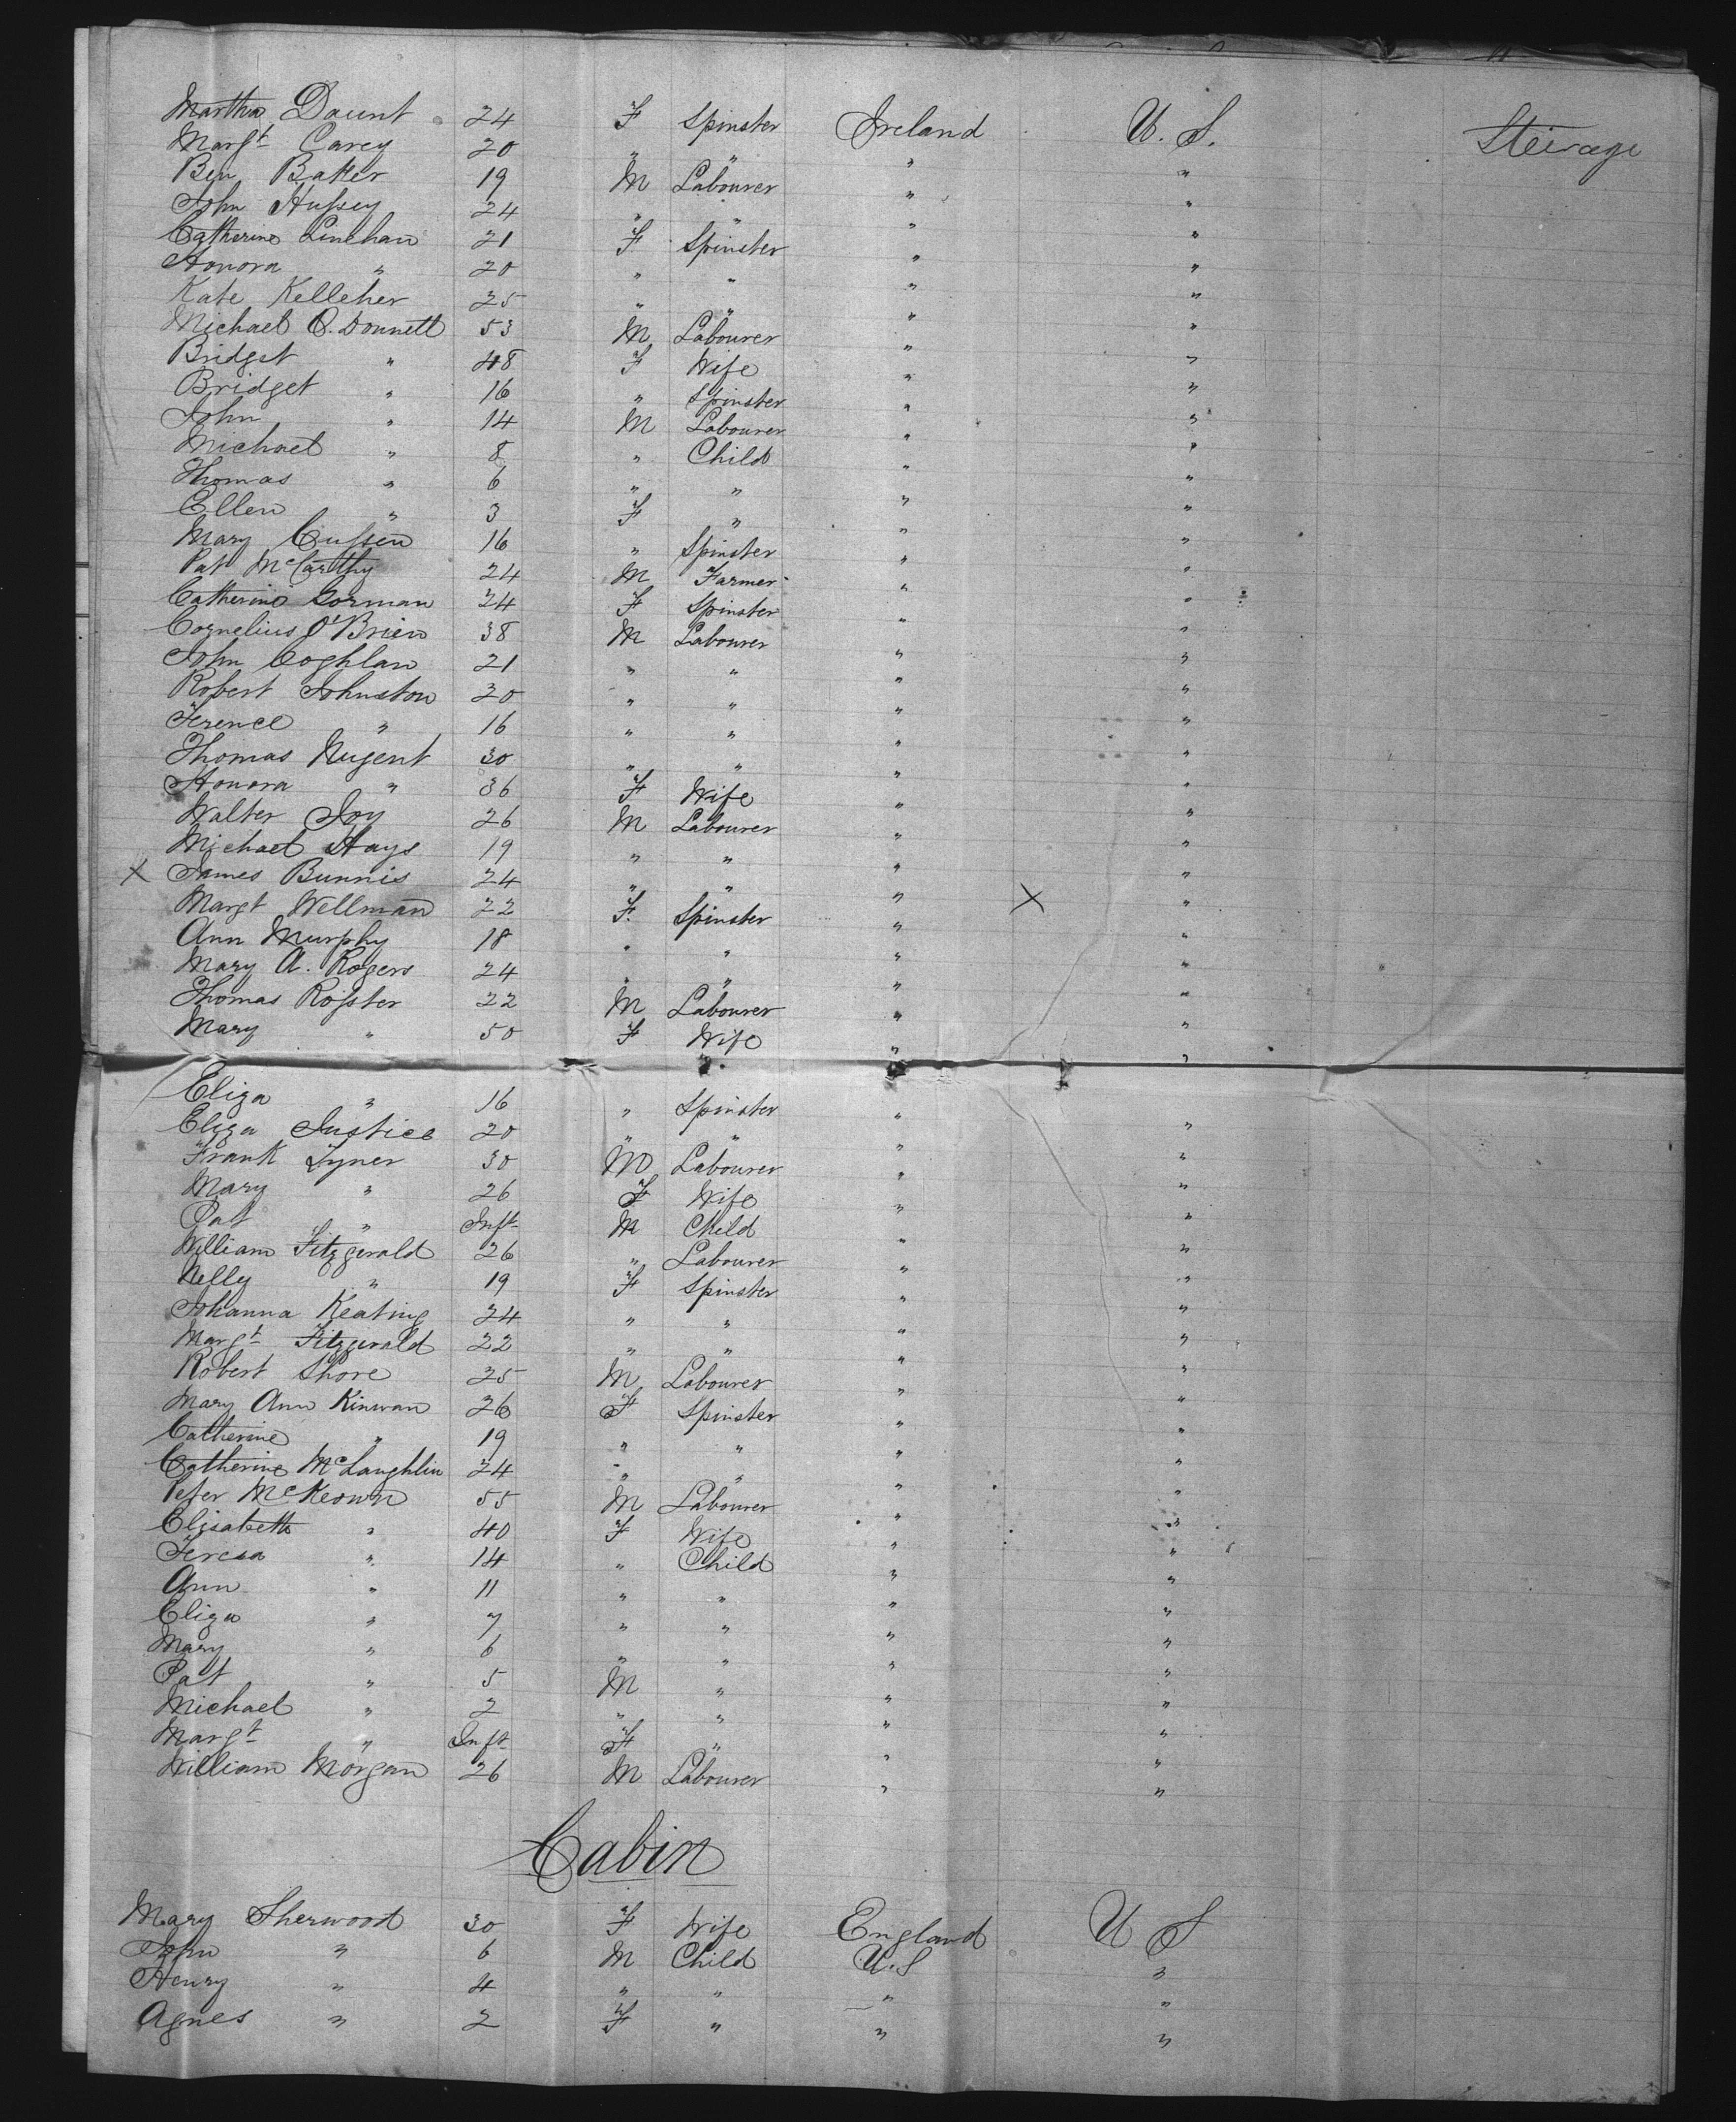 Martha Daunt 24 F Spinster Ireland U. S. Steirage
Margt Carey 20 " " " "
Ben Baker 19 M Labourer " "
John Hussey 24 " " " "
Catherine Linehan 21 F Spinster " "
Honora " 20 " " " "
Kate Kelleher 25 " " " "
Michael O. Donnell 53 M Labourer " "
Bridget " 48 F Wife " "
Bridget " 16 " Spinster " "
John " 14 M Labourer " "
Michael " 8 " Child " "
Thomas " 6 " " " "
Ellen " 3 F " " "
Mary Cussen 16 " Spinster " "
Pat McCarthy 24 M Farmer " "
Catherine Gorman 24 F Spinster " "
Cornelius O'Brien 38 M Labourer " "
John Coghlan 21 " " " "
Robert Johnston 20 " " " "
Terence " 16 " " " "
Thomas Nugent 30 " " " "
Honora " 36 F Wife " "
Walter Joy 26 M Labourer " "
Michael Hays 19 " " " "
X James Bunnis 24 " " " X "
Margt Wellman 22 F. Spinster " "
Ann Murphy 18 " " " "
Mary A. Rogers 24 " " " "
Thomas Rosster 22 M Labourer " "
Mary " 50 F Wife " "
Eliza " 16 " Spinster " "
Eliza Justice 20 " " " "
Frank Tyner 30 M Labourer " "
Mary " 26 F Wife " "
Pat " Inft M Child " "
William Fitzgerald 26 " Labourer " "
Nelly " 19 F Spinster " "
Johanna Keating 24 " " " "
Margt Fitzgerald 22 " " " "
Robert Shore 25 M Labourer " "
Mary Ann Kinwan 26 F Spinster " "
Catherine " 19 " " " "
Catherine McLaughlin 24 " " " "
Peter McKeown 55 M Labourer " "
Elisabeth " 40 F Wife " "
Teresa " 14 " Child " "
Ann " 11 " " " "
Eliza " 7 " " " "
Mary " 6 " " " "
Pat " 5 M " " "
Michael " 2 " " " "
Margt " Inft F " " "
William Morgan 26 M Labourer " "
Cabin
Mary Sherwood 30 F Wife England U S
John " 6 M Child U.S "
Henry " 4 " " " "
Agnes " 2 F " " "